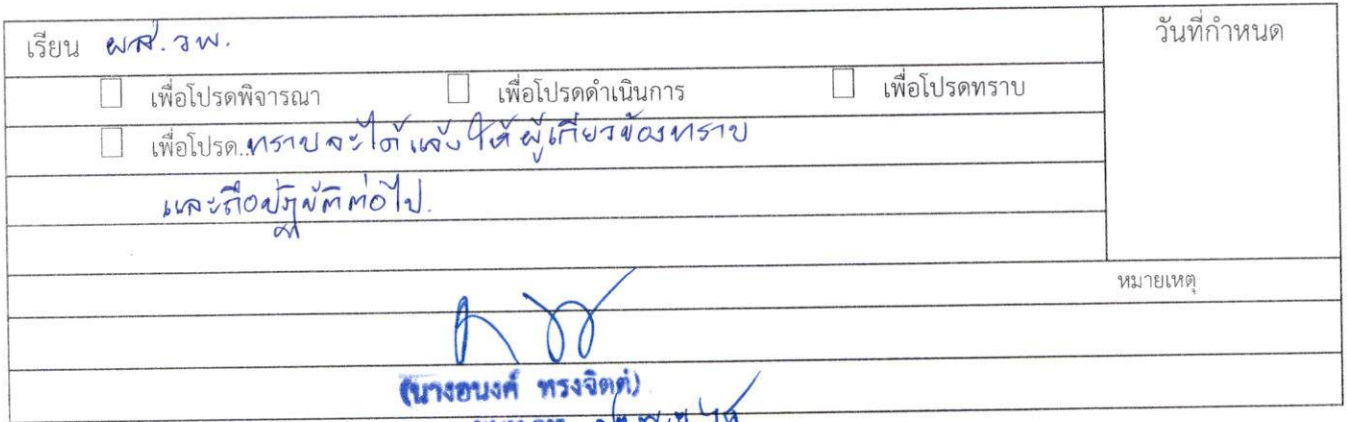 เรียน ผส.วพ.
วันที่กำหนด
เพื่อโปรดพิจารณา เพื่อโปรดดำเนินการ เพื่อโปรดทราบ
เพื่อโปรด..ทราบจะได้แจ้งให้ผู้เกี่ยวข้องทราบ
และถือปฏิบัติต่อไป.
หมายเหตุ
(นางอนงค์ ทรงจิตต์)